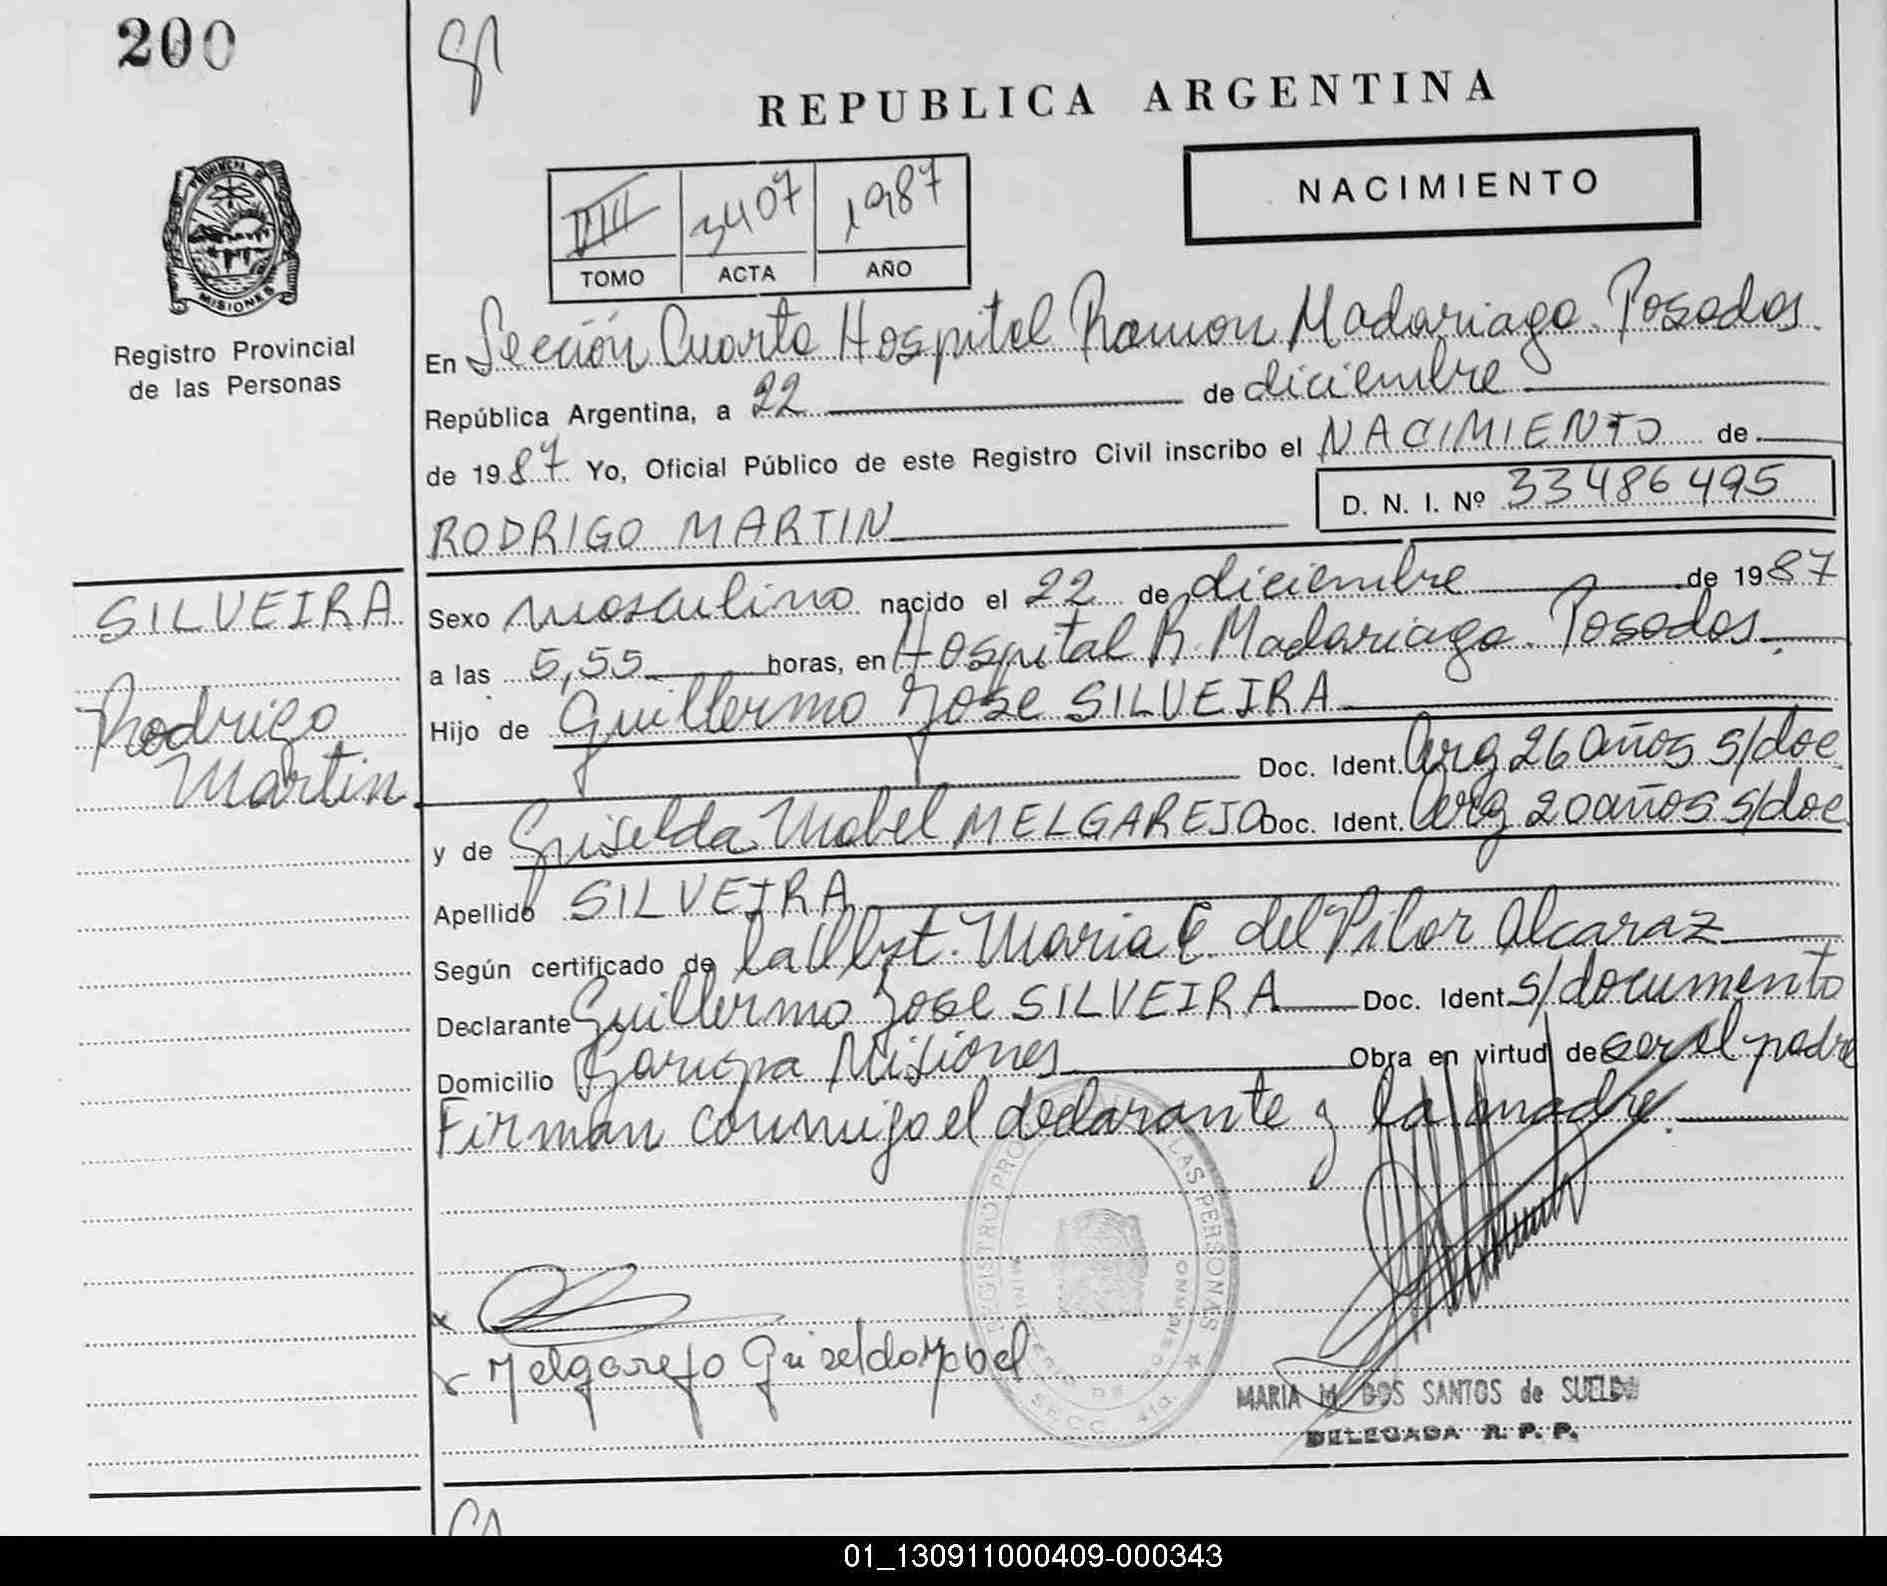 200
REPUBLICA ARGENTINA
NACIMIENTO
VIII 3407 1987
TOMO ACTA AÑO
PROVINCIA DE
MISIONES
Registro Provincial
de las Personas
En Sección Cuarta Hospital Ramon Madariaga. Posadas.
República Argentina, a 22 de diciembre
de 1987 Yo, Oficial Público de este Registro Civil inscribo el NACIMIENTO de
D. N. I. Nº 33486495
RODRIGO MARTIN
SILVEIRA
Rodrigo
Martin
Sexo masculino nacido el 22 de diciembre de 1987
a las 5,55 horas, en Hospital R. Madariaga. Posadas.
Hijo de Guillermo Jose SILVEIRA
Doc. Ident. Arg 26 años s/doc
y de Griselda Mabel MELGAREJO Doc. Ident. Arg 20 años s/doc
Apellido SILVEIRA
Según certificado de la Obst. Maria E. del Pilar Alcaraz
Declarante Guillermo Jose SILVEIRA Doc. Ident. s/documento
Domicilio Garupa Misiones Obra en virtud de ser el padre
Firman conmigo el declarante y la madre.
REGISTRO PRO LAS PERSONAS
SECC. 4ta.
Melgarejo Griselda Mabel
MARIA M. DOS SANTOS de SUELDO
DELEGADA R. P. P.
01_130911000409-000343